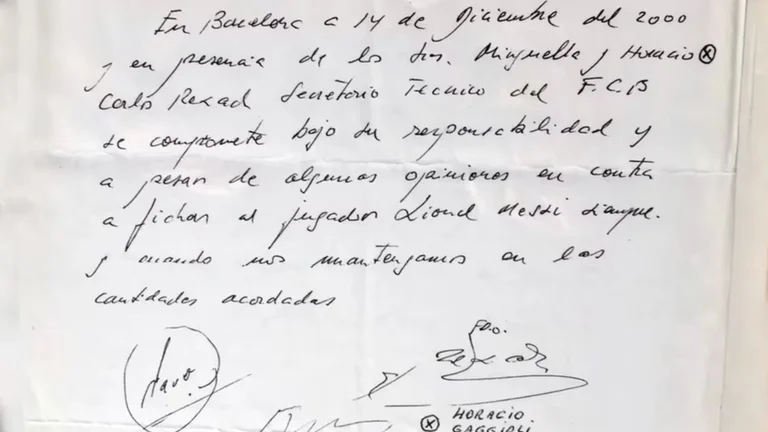 En Barcelona a 14 de Diciembre del 2000
y en presencia de los Srs. Minguella y Horacio
Carlos Rexach Secretario Tecnico del F.C.B
se compromete bajo su responsabilidad y
a pesar de algunas opiniones en contra
a fichar al jugador Lionel Messi siempre
y cuando nos mantengamos en las
cantidades acordadas
Fdo.
HORACIO
GAGGIOLI